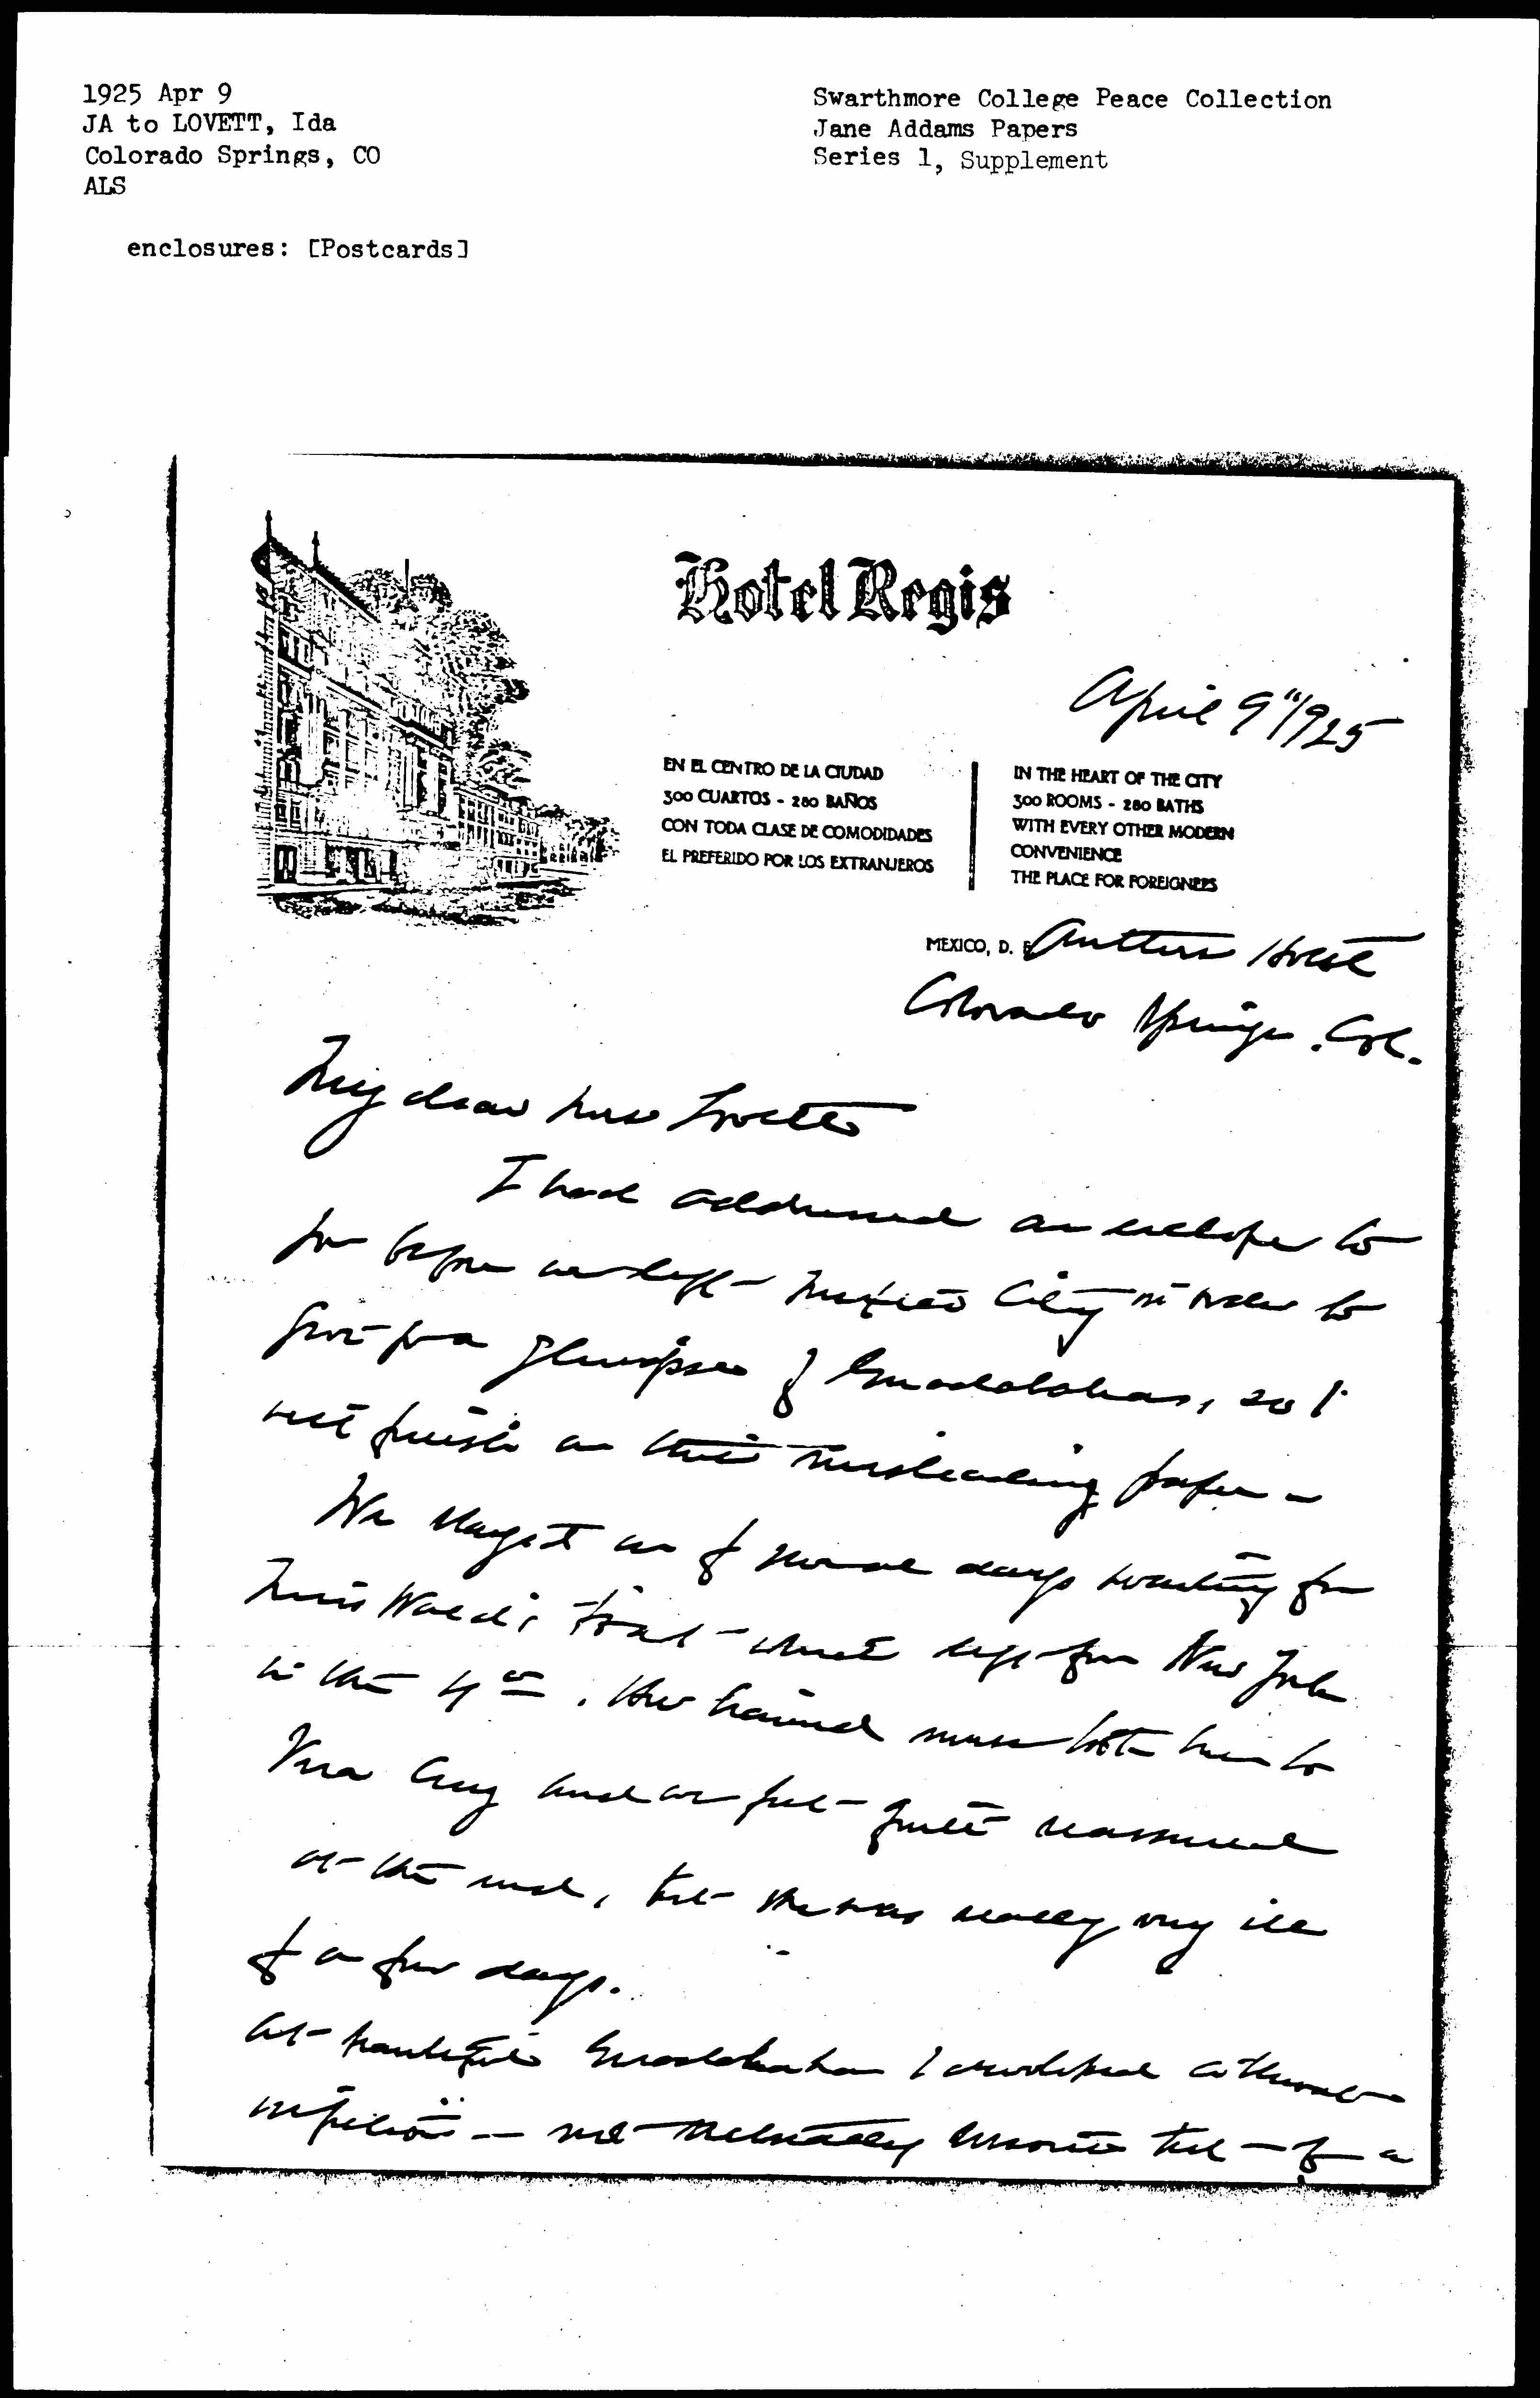 1925 Apr 9
JA to LOVETT, Ida
Colorado Springs, CO
ALS
enclosures: [Postcards]
Swarthmore College Peace Collection
Jane Addams Papers
Series 1, Supplement
Hotel Regis
April 9"/925
EN EL CENTRO DE LA CIUDAD
300 CUARTOS - 280 BAÑOS
CON TODA CLASE DE COMODIDADES
EL PREFERIDO POR LOS EXTRANJEROS
IN THE HEART OF THE CITY
300 ROOMS - 280 BATHS
WITH EVERY OTHER MODERN
CONVENIENCE
THE PLACE FOR FOREIGNERS
MEXICO, D. F. Antlers Hotel
Colorado Springs. Col.
My dear Mrs Lovett
I had addressed an envelope to
you before we left Mexico City in order to
give you a glimpse of Guadalahara, so I
will finish on this misleading paper -
We stayed on for several days waiting for
Miss Wald's boat - which left for New York
on the 4th. Her trained nurse took her to
Vera Cruz and we felt quite reassured
at the end, but she was really very ill
for a few days.
At beautiful Guadalahara I developed a throat
infection — not